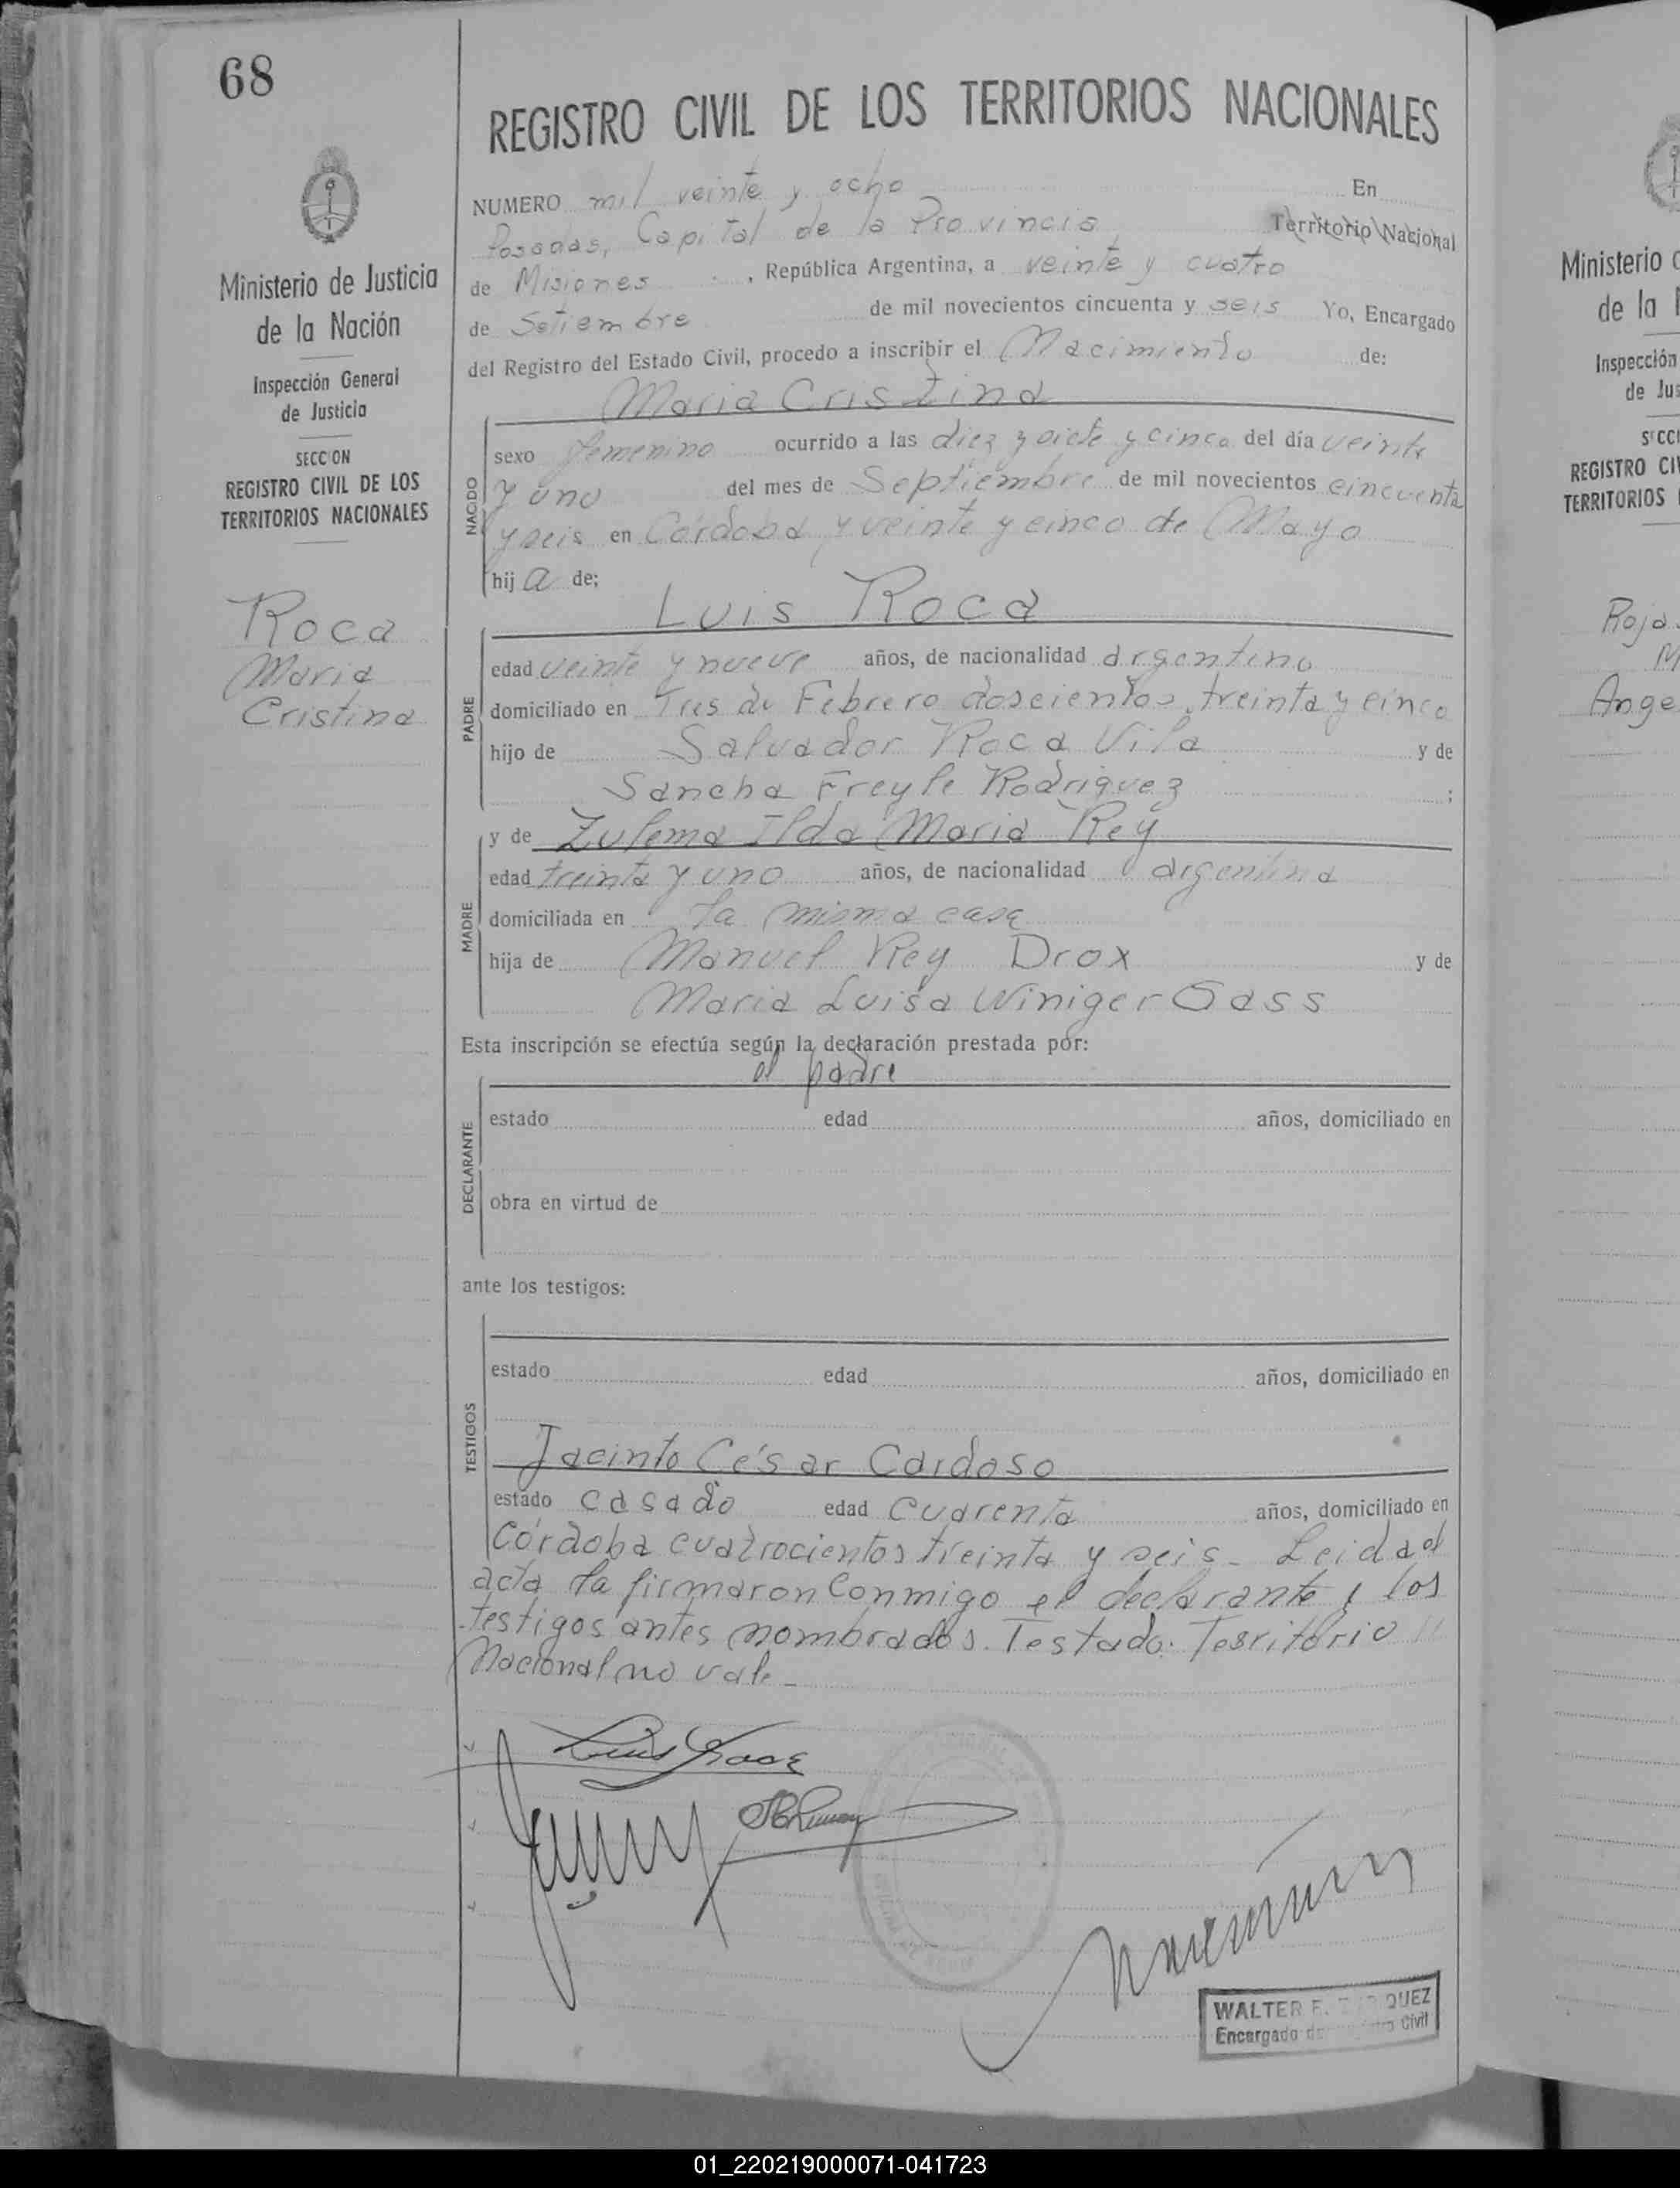 68
REGISTRO CIVIL DE LOS TERRITORIOS NACIONALES
NUMERO mil veinte y ocho En
Posadas, Capital de la Provincia Territorio Nacional
de Misiones, República Argentina, a veinte y cuatro
de Setiembre de mil novecientos cincuenta y seis Yo, Encargado
del Registro del Estado Civil, procedo a inscribir el Nacimiento de:
Maria Cristina
NACIDO
sexo femenino ocurrido a las diez y siete y cinco del día veinte
y uno del mes de Septiembre de mil novecientos cincuenta
y seis en Córdoba y veinte y cinco de Mayo
hija de;
Luis Roca
PADRE
edad veinte y nueve años, de nacionalidad argentino
domiciliado en Tres de Febrero doscientos treinta y cinco
hijo de Salvador Roca Vila y de
Sancha Freyle Rodriguez ;
y de Zulema Ilda Maria Rey
MADRE
edad treinta y uno años, de nacionalidad argentina
domiciliada en la misma casa
hija de Manuel Rey Drox y de
Maria Luisa Winiger Gass
Esta inscripción se efectúa según la declaración prestada por:
el padre
DECLARANTE
estado edad años, domiciliado en
obra en virtud de
ante los testigos:
TESTIGOS
estado edad años, domiciliado en
Jacinto César Cardoso
estado casado edad cuarenta años, domiciliado en
Córdoba cuatrocientos treinta y seis - Leida el
acta la firmaron conmigo el declarante y los
testigos antes nombrados. Testado: Territorio //
Nacional no vale -
Luis Roca
WALTER E. QUEZ
Encargado de Civil
Ministerio de Justicia
de la Nación
Inspección General
de Justicia
SECCION
REGISTRO CIVIL DE LOS
TERRITORIOS NACIONALES
Roca
Maria
Cristina
Ministerio
de la
Inspección
de Jus
SECCI
REGISTRO CI
TERRITORIOS
Roja
M
Ange
01_220219000071-041723